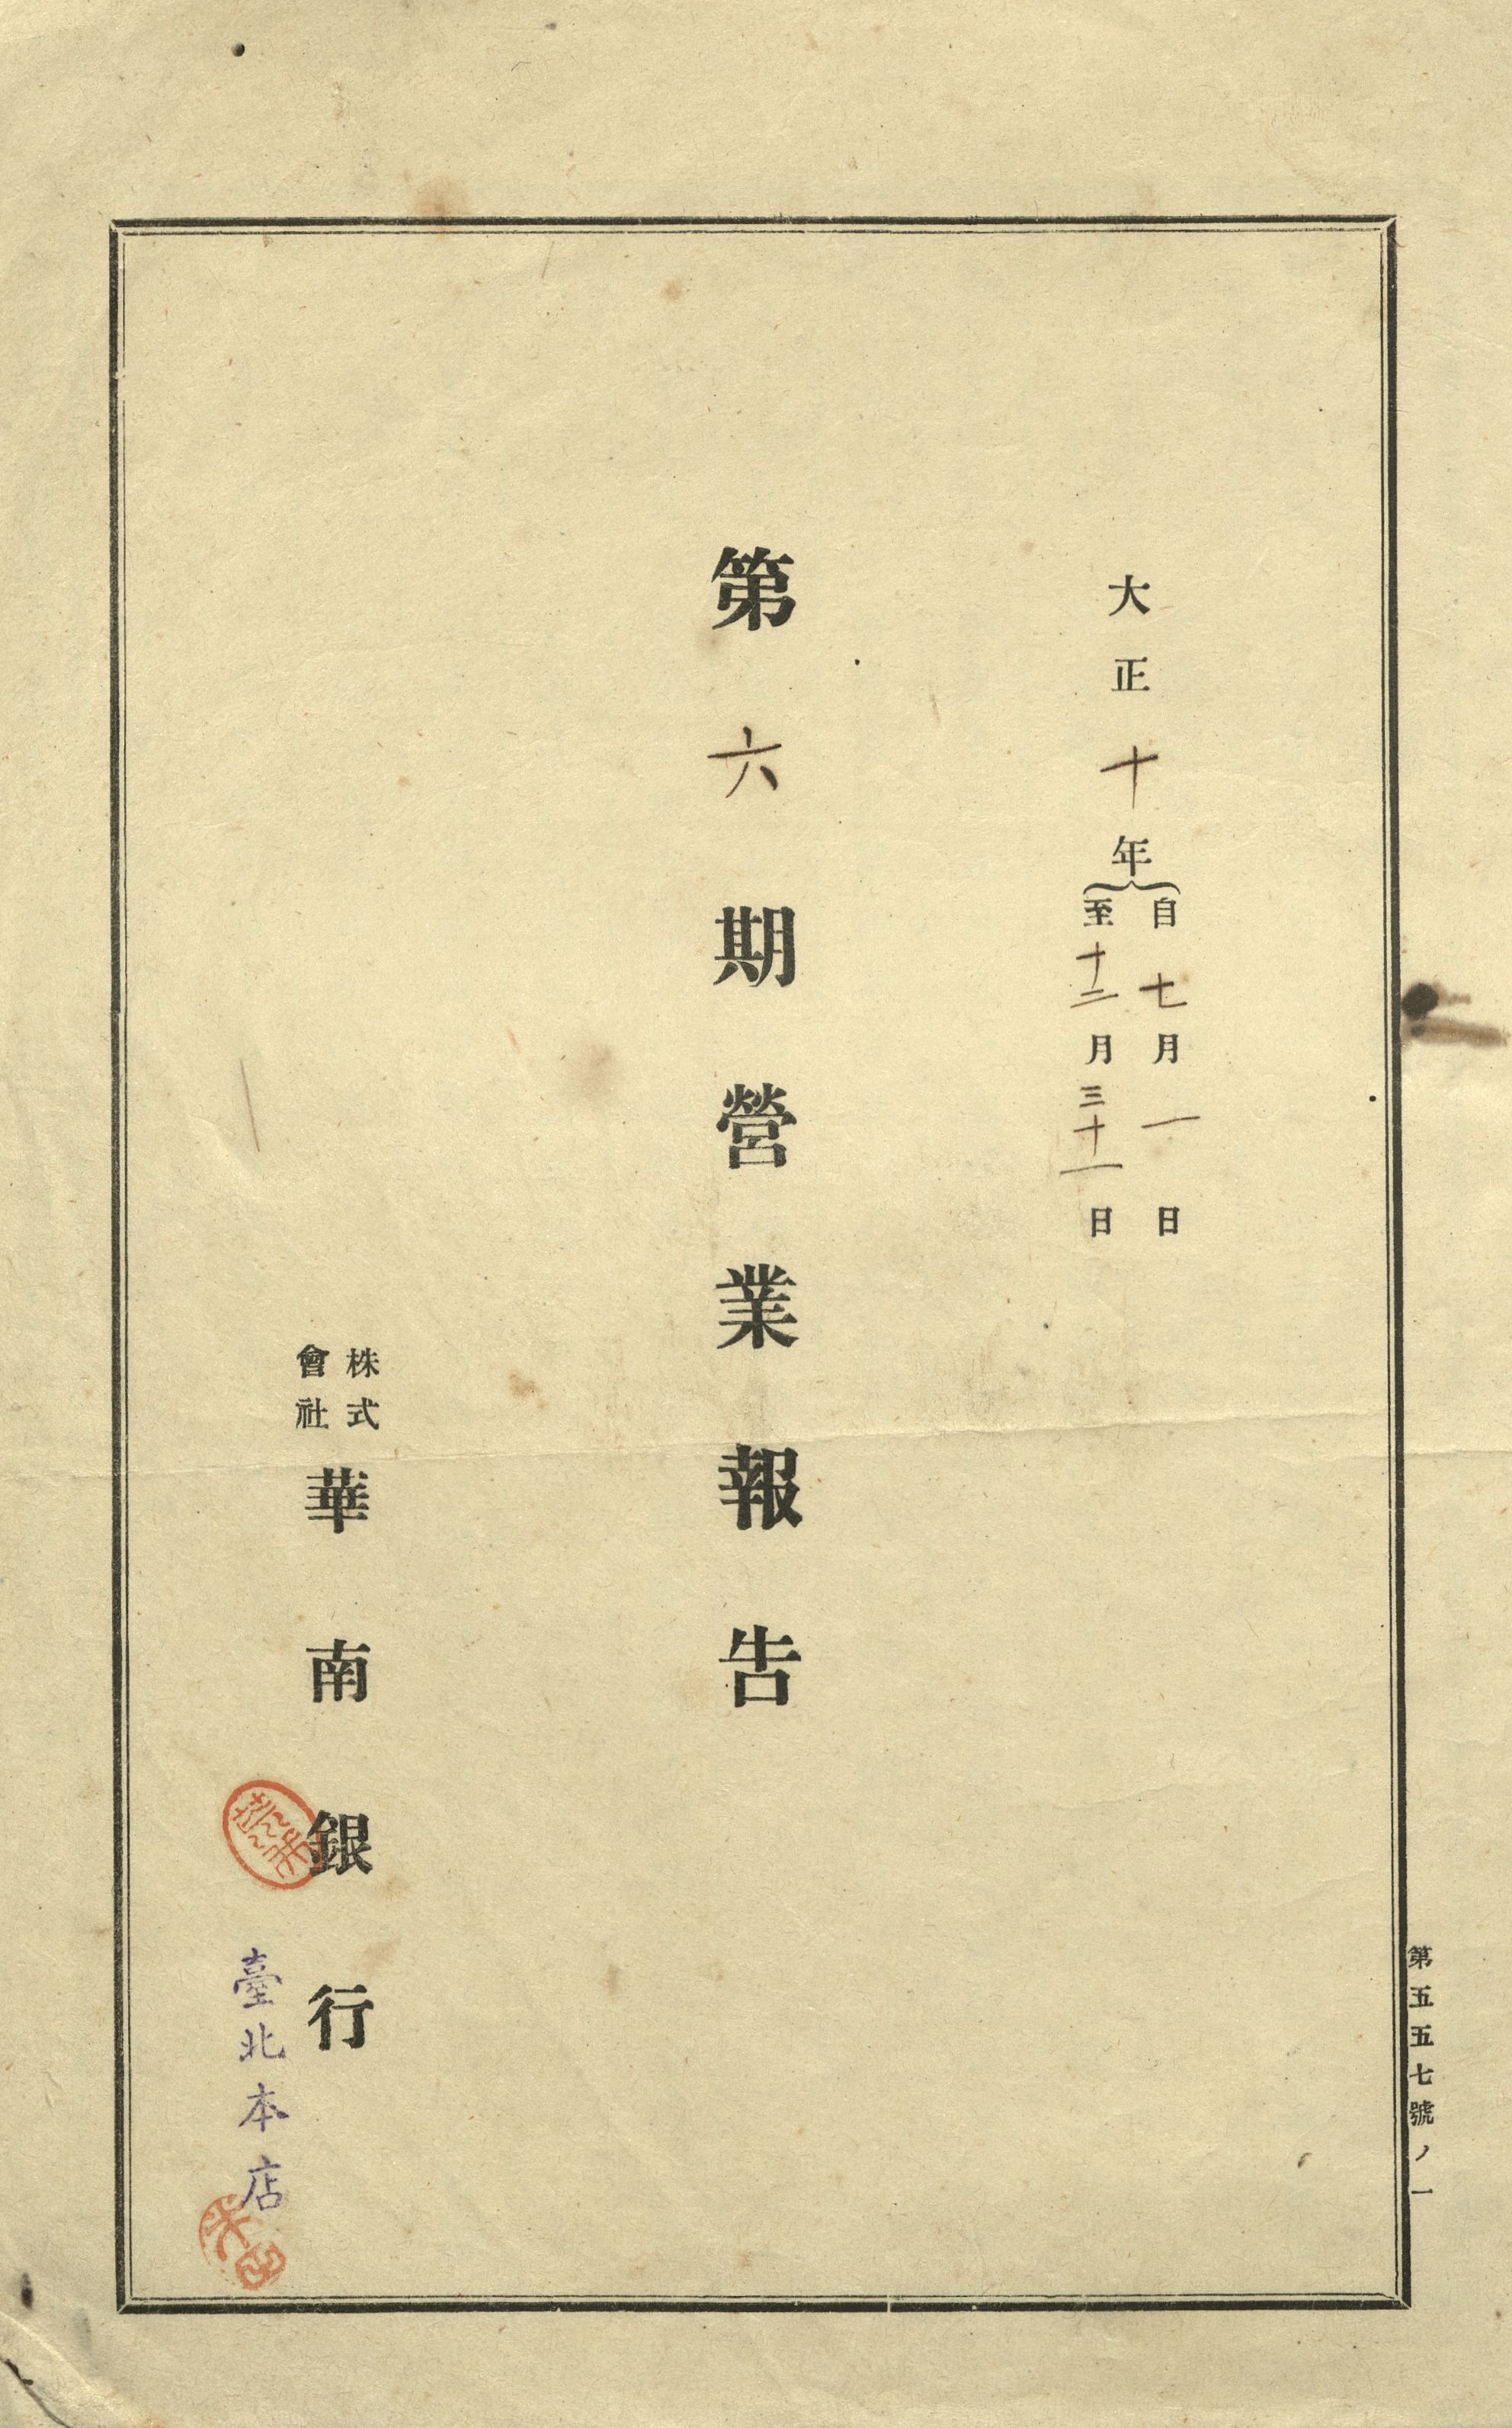 大正十年
自七月一日
至十二月三十一日
第六期營業報告
株式
會社
華南銀行
臺北本店
第五五七號ノ一